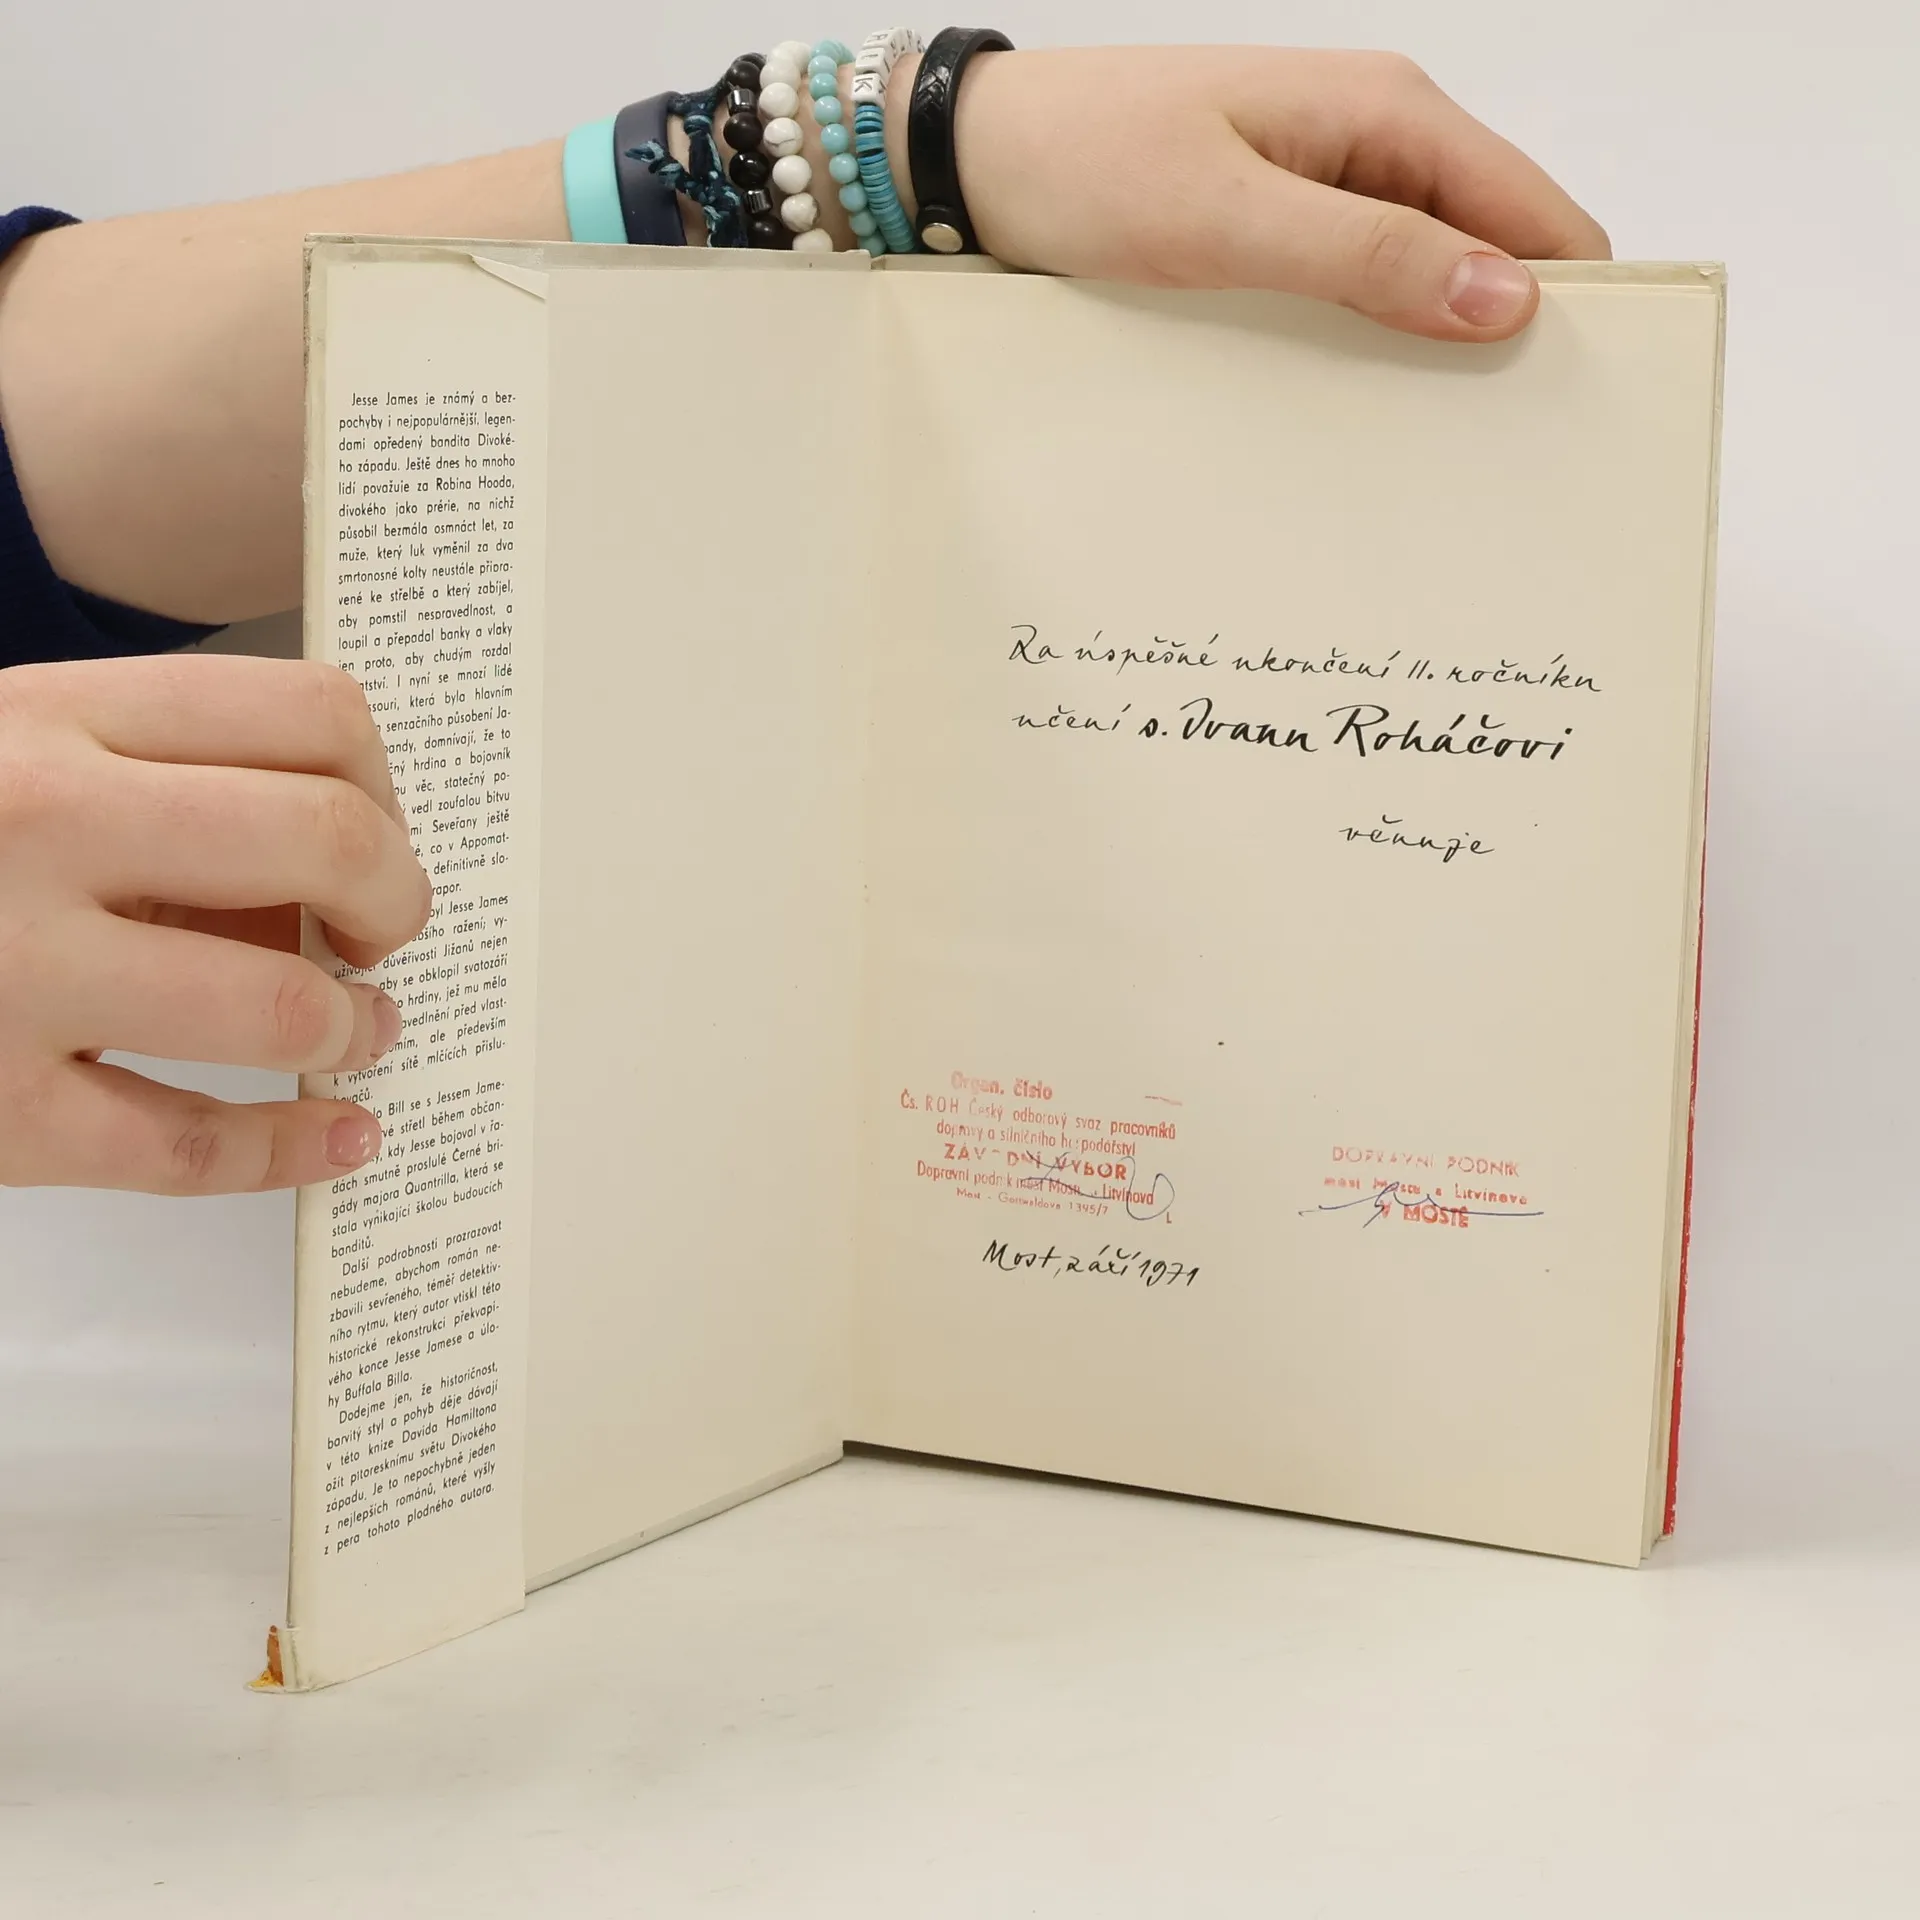 Jesse James je známý a bez-
pochyby i nejpopulárnější, legen-
dami opředený bandita Divoké-
ho západu. Ještě dnes ho mnoho
lidí považuje za Robina Hooda,
divokého jako prérie, na nichž
působil bezmála osmnáct let, za
muže, který luk vyměnil za dva
smrtonosné kolty neustále připra-
vené ke střelbě a který zabíjel,
aby pomstil nespravedlnost, a
loupil a přepadal banky a vlaky
jen proto, aby chudým rozdal
atství. I nyní se mnozí lidé
ssouri, která byla hlavním
senzačního působení Ja-
bandy, domnívají, že to
čný hrdina a bojovník
ou věc, statečný po-
vedl zoufalou bitvu
mi Seveřany ještě
é, co v Appomat-
definitivně slo-
rapor.
byl Jesse James
ražení; vy-
důvěřivosti Jižanů nejen
aby se obklopil svatozáří
o hrdiny, jež mu měla
avedlnění před vlast-
omím, ale především
k vytvoření sítě mlčících přislu-
hovačů.
lo Bill se s Jessem Jame-
rvé střetl během občan-
y, kdy Jesse bojoval v řa-
dách smutně proslulé Černé bri-
gády majora Quantrilla, která se
stala vynikající školou budoucích
banditů.
Další podrobnosti prozrazovat
nebudeme, abychom román ne-
zbavili sevřeného, téměř detektiv-
ního rytmu, který autor vtiskl této
historické rekonstrukci překvapi-
vého konce Jesse Jamese a úlo-
hy Buffala Billa.
Dodejme jen, že historičnost,
barvitý styl a pohyb děje dávají
v této knize Davida Hamiltona
ožít pitoresknímu světu Divokého
západu. Je to nepochybně jeden
z nejlepších románů, které vyšly
z pera tohoto plodného autora.
Za úspěšné ukončení II. ročníku
učení s. Ivanu Roháčovi
věnuje
Organ. číslo
Čs. ROH Český odborový svaz pracovníků
dopravy a silničního hospodářství
ZÁVODNÍ VÝBOR
Dopravní podnik měst Mostu a Litvínova
Most - Gottwaldova 1395/7
DOPRAVNÍ PODNIK
měst Mostu a Litvínova
V MOSTĚ
Most, září 1971